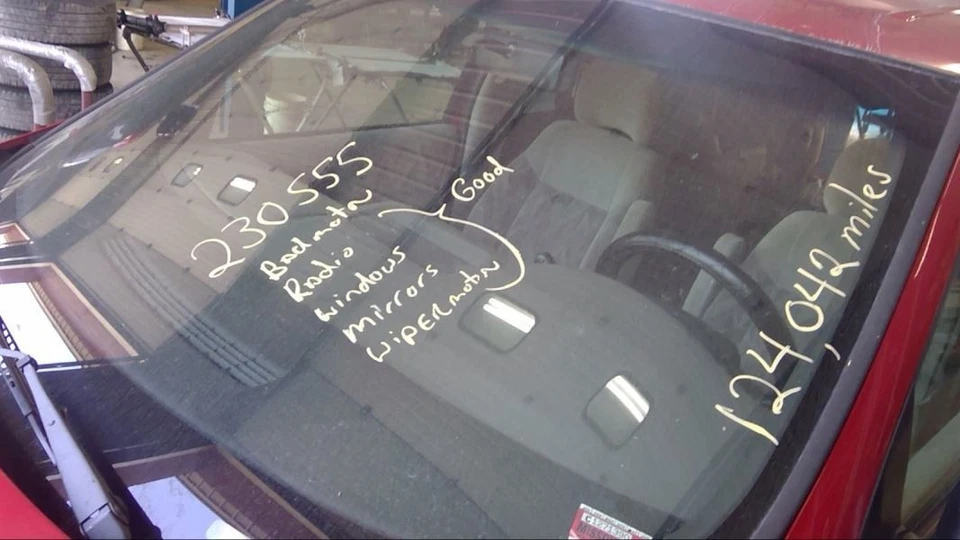 230555
Bad motor
Radio
windows
mirrors
wiper motor
Good
124,042 miles